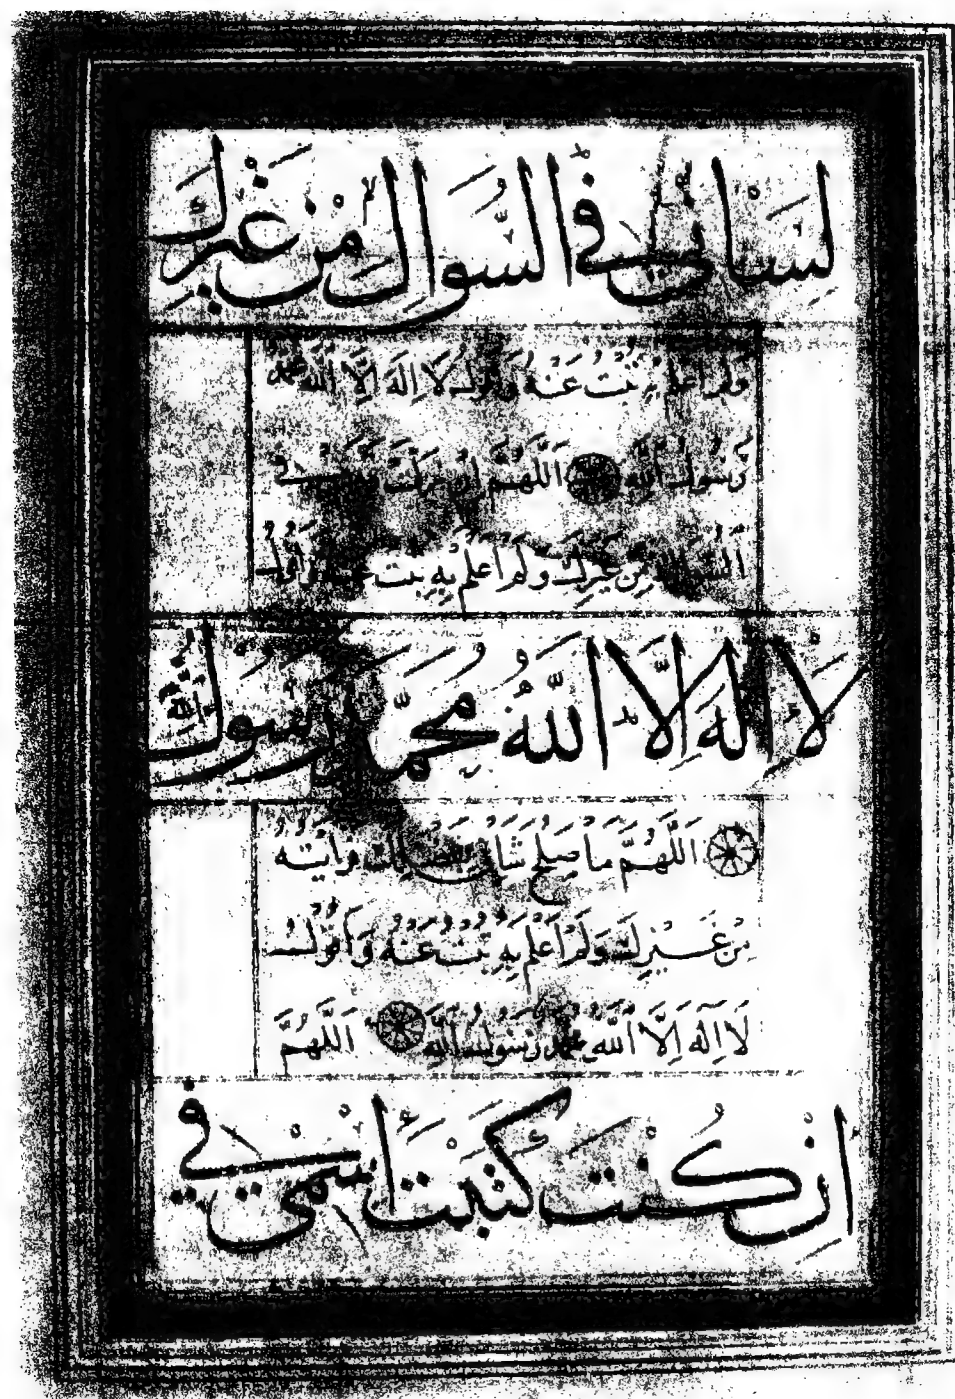 لِسَانِي فِي السُّوَالِ مِنْ غَيْرِكَ
وَلَمْ اَعْلَمْ بِهِ تُبْتُ عَنْهُ وَاَقُولُ لَا اِلَهَ اِلَّا اللَّهُ مُحَمَّدٌ
رَسُولُ اللَّهِ اَللَّهُمَّ اِنْ فِي
السُّوَالِ مِنْ غَيْرِكَ وَلَمْ اَعْلَمْ بِهِ تُبْتُ عَنْهُ وَاَقُولُ
لَا اِلَهَ اِلَّا اللَّهُ مُحَمَّدٌ رَسُولُ اللَّهِ
اَللَّهُمَّ مَا صَلَحَ شَانِي بِفَضْلِكَ وَرَاَيْتُهُ
مِنْ غَيْرِكَ وَلَمْ اَعْلَمْ بِهِ تُبْتُ عَنْهُ وَاَقُولُ
لَا اِلَهَ اِلَّا اللَّهُ مُحَمَّدٌ رَسُولُ اللَّهِ اَللَّهُمَّ
اِنْ كُنْتَ كَتَبْتَ اسْمِي فِي